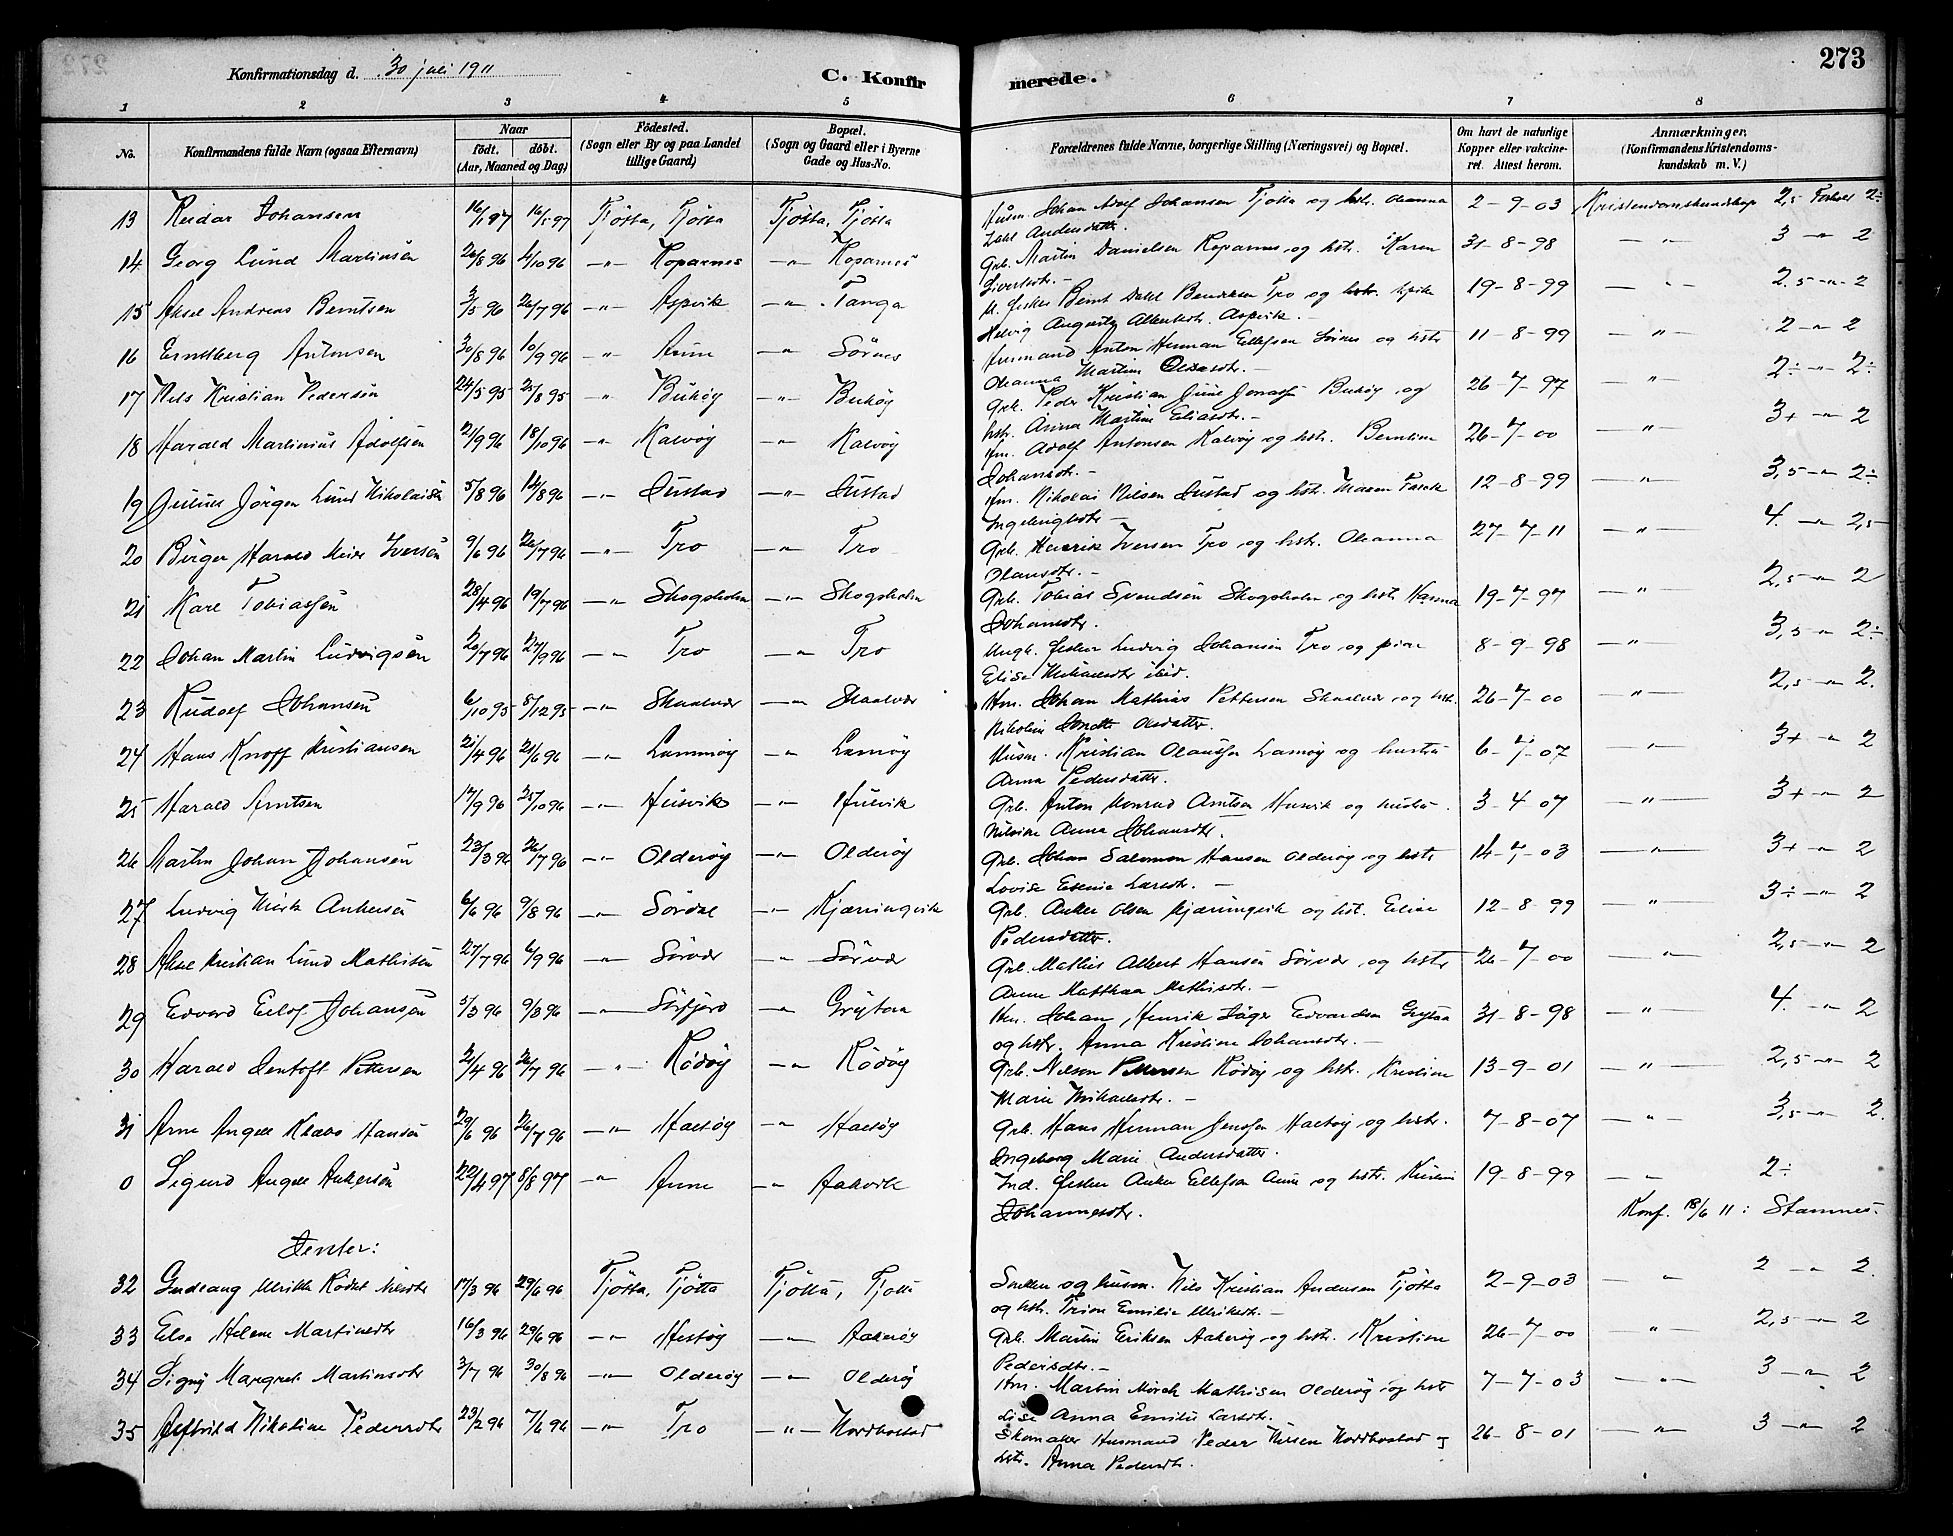 273
Konfirmationsdag d. 30 juli 1911
C. Konfirmerede.
1 2 3 4 5 6 7 8
No.
Konfirmandens fulde Navn (ogsaa Efternavn)
Naar
födt. döbt.
(Aar, Maaned og Dag)
Födested.
(Sogn eller By og paa Landet
tillige Gaard)
Bopæl.
(Sogn og Gaard eller i Byerne
Gade og Hus-No.
Forældrenes fulde Navne, borgerlige Stilling (Næringsvei) og Bopæl.
Om havt de naturlige
Kopper eller vakcine-
ret. Attest herom.
Anmærkninger.
(Konfirmandens Kristendoms-
kundskab m. V.)
13 Reidar Johansen 16/1 97 16/5 97 Tjötta, Tjötta Tjötta, Tjötta Husm. Johan Adolf Johansen Tjötta og hstr. Oleanna 2-9-03 Kristendomskundskap 2,5 Forhold 2÷
Dahl Andersdatter.
14 Georg Lund Martinsen 26/8 96 4/10 96 —"— Koparnes —"— Koparnes Grb. Martin Danielsen Koparnes og hstr. Karen 31-8-98 —"— 3 —"— 2
Sivertsdtr.
15 Aksel Andreas Berntsen 3/5 96 26/7 96 —"— Aspvik —"— Tanga fisker Bernt Dahl Bendiksen Tro og 19-8-99 —"— 2.5 —"— 2
Helvig Augusta Albertsdtr. Aspvik.
16 Arntsen Antonsen 30/8 96 10/9 96 —"— Aune —"— Sörnes Husmand Anton Herman Ellefsen Sörnes og hstr 11-8-99 —"— 2 —"— 2
Oleanna Martine Olsdtr.
17 Nils Kristian Pedersen 24/5 95 25/8 95 —"— Buköy —"— Buköy Grb. Peder Kristian June Jonassen Buköy og 26-7-97 —"— 2÷ —"— 2÷
hstr. Anna Martine Eliasdtr.
18 Harald Martinius Adolfsen 21/9 96 18/10 96 —"— Kalvöy —"— Kalvöy Hm. Adolf Antonsen Kalvöy og hstr. Berntine 26-7-00 —"— 3+ —"— 2
Johansdtr.
19 Julius Jörgen Lund Nikolaisen 5/8 96 14/8 96 —"— Oustad —"— Oustad Hm. Nikolai Nilsen Oustad og hstr. Maren 12-8-99 —"— 3,5 —"— 2÷
Ingebrigtsdtr.
20 Birger Harald Meier Iversen 9/6 96 26/7 96 —"— Tro —"— Tro Grb. Henrik Iversen Tro og hstr. Oleanna 27-7-11 —"— 4 —"— 2,5
Olausdtr.
21 Karl Tobiassen 28/4 96 19/7 96 —"— Skogsholm —"— Skogsholm Grb. Tobias Svendsen Skogsholm og hstr. Hanna 19-7-97 —"— 2,5 —"— 2
Johansdtr.
22 Johan Martin Ludvigsen 20/7 96 27/9 96 —"— Tro —"— Tro Ungk. fisker Ludvig Johansen Tro og pine 8-9-98 —"— 3,5 —"— 2÷
Elise Mikaelsdtr ibid.
23 Rudolf Johansen 6/10 95 8/12 95 —"— Skaalvær —"— Skaalvær Hm. Johan Mathias Pettersen Skaalvær og hstr. 26-7-00 —"— 2,5 —"— 2.
Nikoline Olsdatter.
24 Hans Knoff Kristiansen 21/4 96 21/6 96 —"— Lammöy —"— Lamöy Husm. Kristian Olaussen Lamöy og hustru 6-7-07 —"— 3+ —"— 2
Anna Pedersdatter.
25 Harald Arntsen 17/9 96 25/10 96 —"— Husvik —"— Husvik Grb. Anton Konrad Arntsen Husvik og hustru 3-4-07 —"— 3+ —"— 2
Nilsine Anna Johansdtr.
26 Martin Johan Johansen 23/3 96 26/7 96 —"— Olderöy —"— Olderöy Grb. Johan Salomon Hansen Olderöy og hstr 14-7-03 —"— 3+ —"— 2
Lovise Larsdtr.
27 Ludvig Meier Ankersen 6/6 96 9/8 96 —"— Sördal —"— Kjærringvik Grb. Anker Olsen Kjærringvik og hst. Eline 12-8-99 —"— 3÷ —"— 2
Pedersdatter.
28 Aksel Kristian Lund Mathisen 27/7 96 6/9 96 —"— Sörvær —"— Sörvær Grb. Mathis Albert Hansen Sörvær og hstr 26-7-00 —"— 2,5 —"— 2
Anne Matthea Mathisdtr.
29 Edvard Eilof Johansen 5/3 96 9/3 96 —"— Sörfjord —"— Gryteaa Hm. Johan Henrik Jäger Edvardsen Gryteaa 31-8-98 —"— 4. —"— 2
og hstr. Anna Kristine Johansdtr.
30 Harald Dentoft Pettersen 2/4 96 26/7 96 —"— Rödöy —"— Rödöy Grb. Nilson Pettersen Rödöy og hstr. Kristine 13-9-01 —"— 2,5 —"— 2
Marie Mikaelsdtr.
31 Arne Angell Klæbo Hansen 29/6 96 26/7 96 —"— Hæstöy —"— Hæstöy Grb. Hans Herman Jenssen Hæstöy og hstr. 7-8-07 —"— 3,5 —"— 2.
Ingeborg Marie Andersdatter.
0 Sigurd Angell Ankersen 22/4 97 8/8 97 —"— Aune —"— Aakvik Ind. fisker Anker Ellefsen Aune og hstr. 19-8-99 —"— 2÷
Johannesdtr. Konf. 18/6 11: Stamnes.
Jenter:
32 Gudlaug Ulrikke Rödal Nilsdtr 17/3 96 29/6 96 Tjötta, Tjötta Tjötta, Tjötta Snekker og husm. Nils Kristian Andersen Tjötta 2-9-03 —"— 2 —"— 2.
og hstr. Trine Emilie Ulriksdtr.
33 Elsa Helene Martinsdtr 16/3 96 29/6 96 —"— Hestöy —"— Aakeröy Grb. Martin Eriksen Aakeröy og hstr. Kristine 26-7-00 —"— 2,5 —"— 2
Pedersdtr.
34 Signy Margret Martinsdtr 3/7 96 30/8 96 —"— Olderöy —"— Olderöy Hm. Martin Mörck Mathisen Olderöy og hstr 7-7-03 —"— 3 —"— 2
Lise Anna Emilie Larsdtr.
35 Nikoline Pedersdtr 23/2 96 7/6 96 —"— Tro —"— Nordbostad Skomaker Husmand Peder Nilsen Nordbostad og 26-8-01 —"— 3 —"— 2
hstr. Anna Pedersdtr.